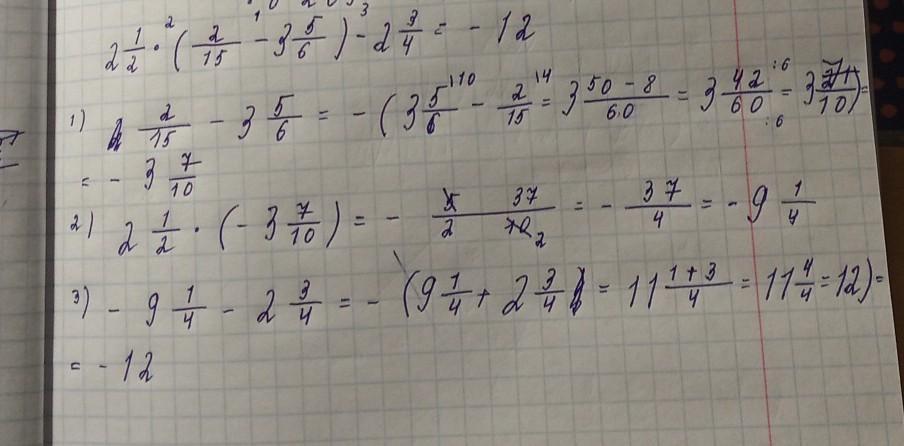 2 1/2 ·² (2/15 -¹ 3 5/6) -³ 2 3/4 = - 12
1) 2/15 - 3 5/6 = - (3 5/6 \10 - 2/15 \4 = 3 (50 - 8)/60 = 3 42/60 :6 :6 = 3 7/10) =
= - 3 7/10
2) 2 1/2 · (- 3 7/10) = - (5 37)/(2 10 2) = - 37/4 = - 9 1/4
3) - 9 1/4 - 2 3/4 = - (9 1/4 + 2 3/4 = 11 (1 + 3)/4 = 11 4/4 = 12) =
= - 12